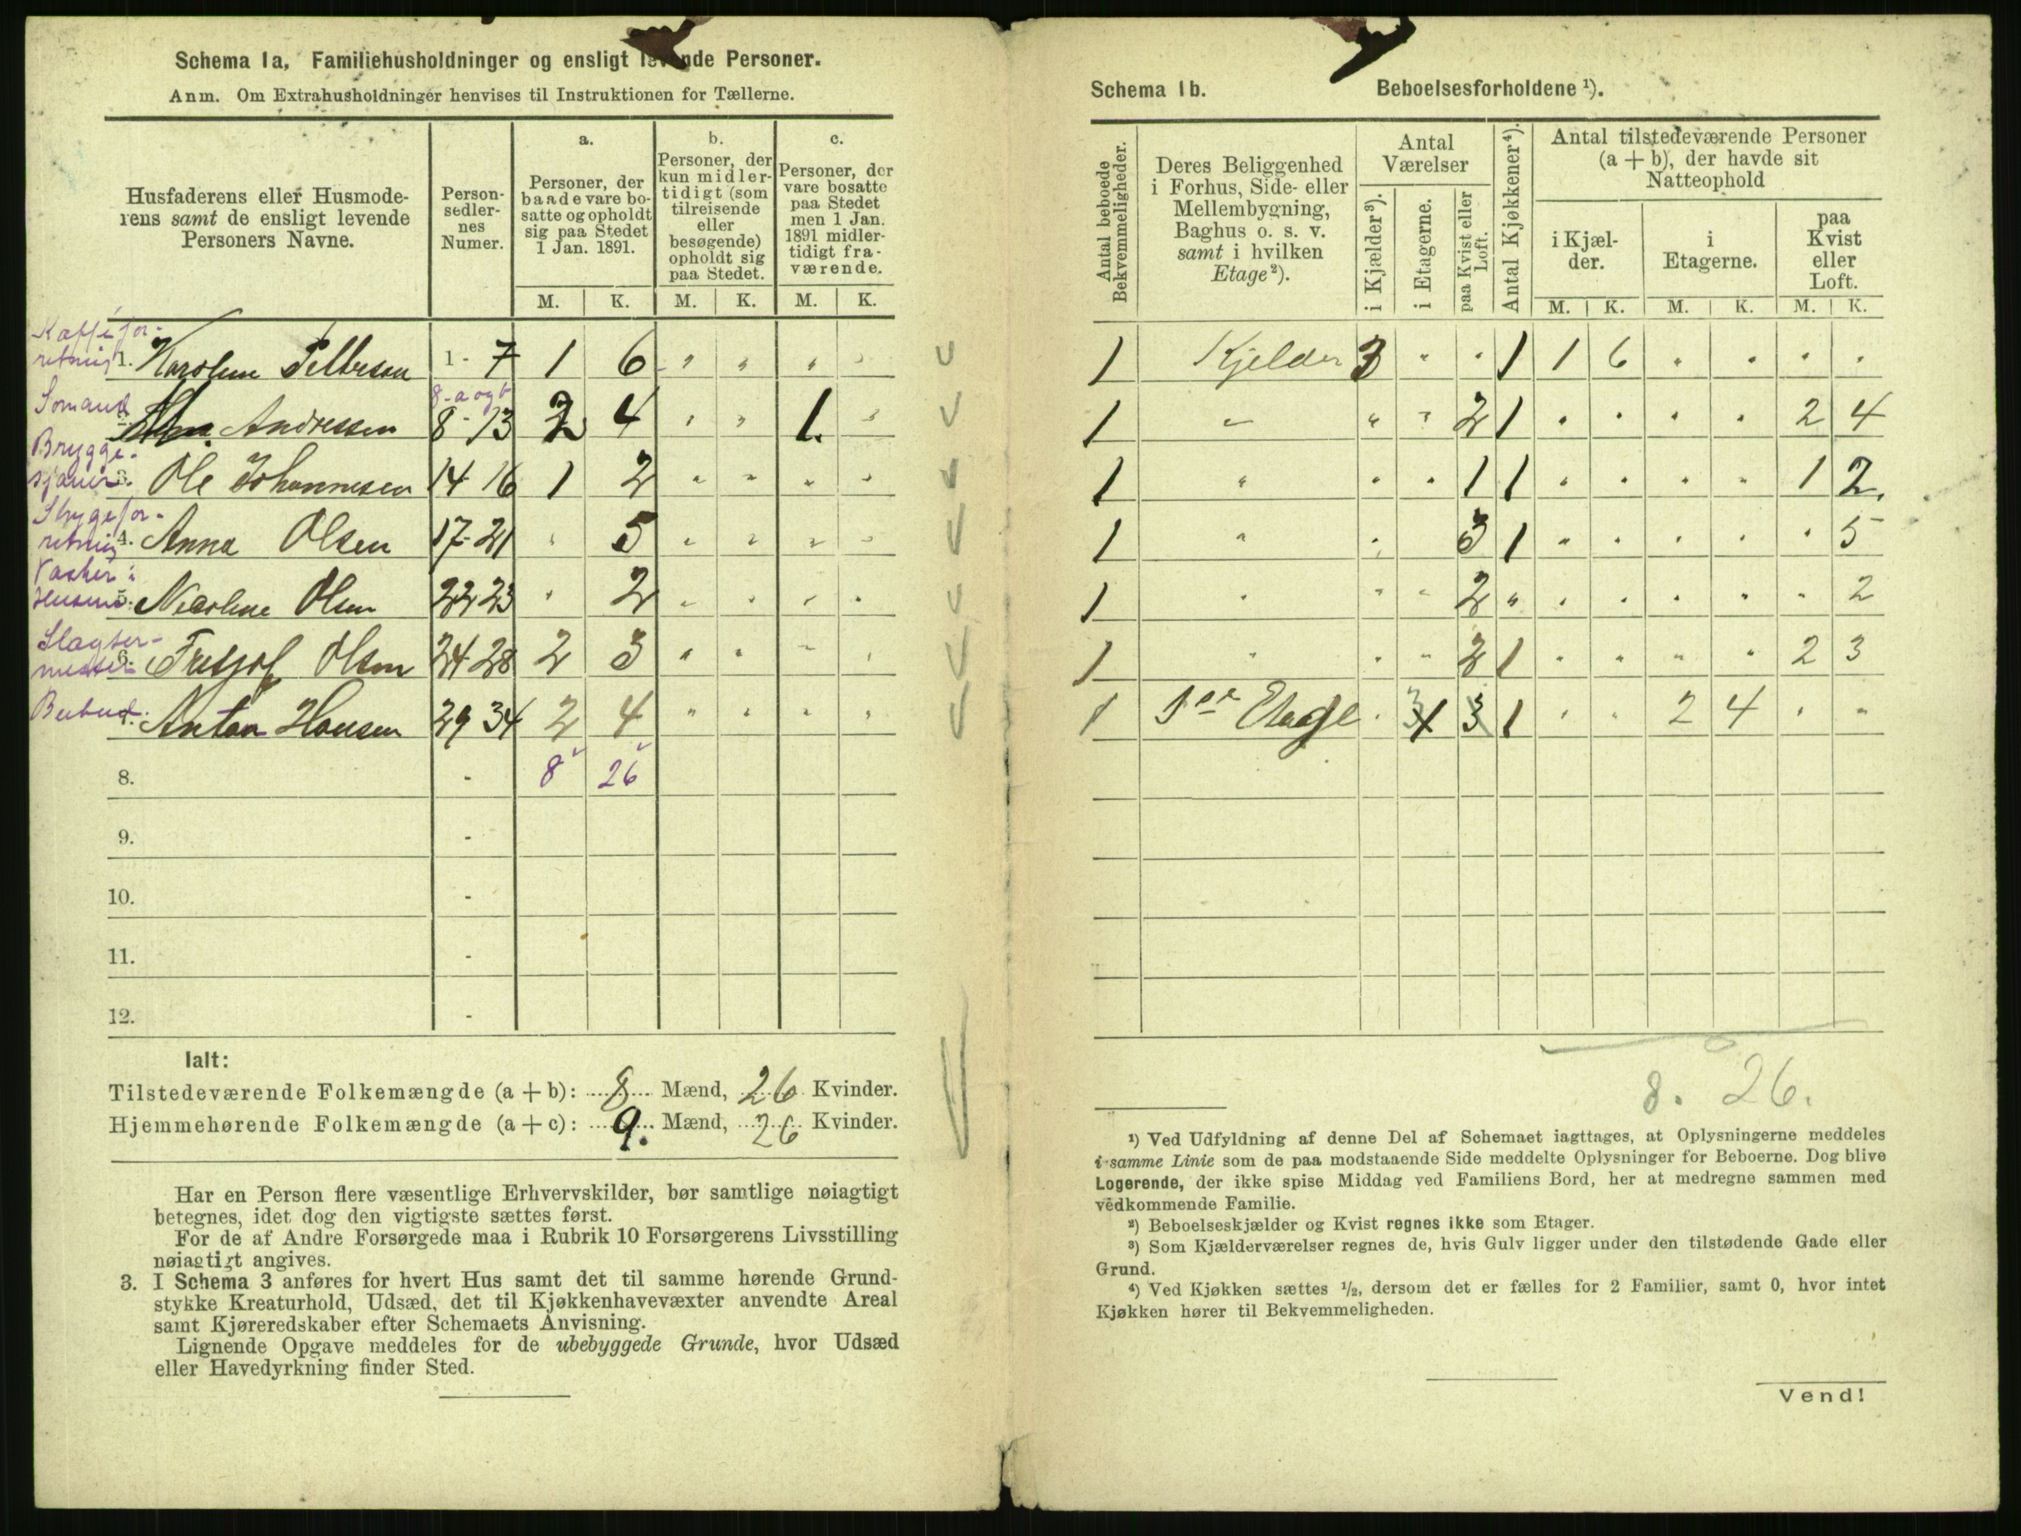 Schema 1a, Familiehusholdninger og ensligt levende Personer.
Anm. Om Extrahusholdninger henvises til Instruktionen for Tællerne.
Husfaderens eller Husmoderens samt de ensligt levende Personers Navne.
Personsedlernes Numer.
a.
Personer, der baade vare bosatte og opholdt sig paa Stedet 1 Jan. 1891.
b.
Personer, der kun midlertidigt (som tilreisende eller besøgende) opholdt sig paa Stedet.
c.
Personer, der vare bosatte paa Stedet men 1 Jan. 1891 midlertidigt fraværende.
M. K. M. K. M. K.
Kaffefor-
retning 1. Karoline Pettersen 1 - 7 1 6 " " " "
8-a og b
Sømand Andressen 8 - 13 2 4 " " 1. "
Brygge-
sjauer. 3. Ole Johannesen 14 16 1 2 " " " "
Strygefor-
retning 4. Anna Olsen 17-21 " 5 " " " "
Vasker i
Husene 5. Nicoline Olsen 22 23 " 2 " " " "
Slagter-
mester 6. Fritjof Olsen 24 28 2 3 " " " "
Bybud 7. Anton Hansen 29 34 2 4 " " " "
8. - 8 26
9. -
10. -
11. -
12. -
Ialt:
Tilstedeværende Folkemængde (a + b): 8 Mænd, 26 Kvinder.
Hjemmehørende Folkemængde (a + c): 9. Mænd, 26 Kvinder.
Har en Person flere væsentlige Erhvervskilder, bør samtlige nøiagtigt
betegnes, idet dog den vigtigste sættes først.
For de af Andre Forsørgede maa i Rubrik 10 Forsørgerens Livsstilling
nøiagtigt angives.
3. I Schema 3 anføres for hvert Hus samt det til samme hørende Grund-
stykke Kreaturhold, Udsæd, det til Kjøkkenhavevæxter anvendte Areal
samt Kjøreredskaber efter Schemaets Anvisning.
Lignende Opgave meddeles for de ubebyggede Grunde, hvor Udsæd
eller Havedyrkning finder Sted.
Schema 1b. Beboelsesforholdene ¹).
Antal beboede Bekvemmeligheder.
Deres Beliggenhed i Forhus, Side- eller Mellembygning, Baghus o. s. v. samt i hvilken Etage ²).
Antal Værelser
i Kjælder ³).
i Etagerne.
paa Kvist eller Loft.
Antal Kjøkkener ⁴).
Antal tilstedeværende Personer (a + b), der havde sit Natteophold
i Kjælder.
i Etagerne.
paa Kvist eller Loft.
M. K. M. K. M. K.
1 Kjelder 3 " " 1 1 6 " " " "
1 " " " 2 1 " " " " 2 4
1 " " " 1 1 " " " " 1 2.
1 " " 3 1 " " " " " 5
1 " " " 2 " " " " " " 2
1 " " " 2 1 " " " " 2 3
1 1ste Etage " 3 1 " " 2 4 " "
8. 26.
¹) Ved Udfyldning af denne Del af Schemaet iagttages, at Oplysningerne meddeles
i samme Linie som de paa modstaaende Side meddelte Oplysninger for Beboerne. Dog blive
Logerende, der ikke spise Middag ved Familiens Bord, her at medregne sammen med
vedkommende Familie.
²) Beboelseskjælder og Kvist regnes ikke som Etager.
³) Som Kjælderværelser regnes de, hvis Gulv ligger under den tilstødende Gade eller
Grund.
⁴) Ved Kjøkken sættes ½, dersom det er fælles for 2 Familier, samt 0, hvor intet
Kjøkken hører til Bekvemmeligheden.
Vend!